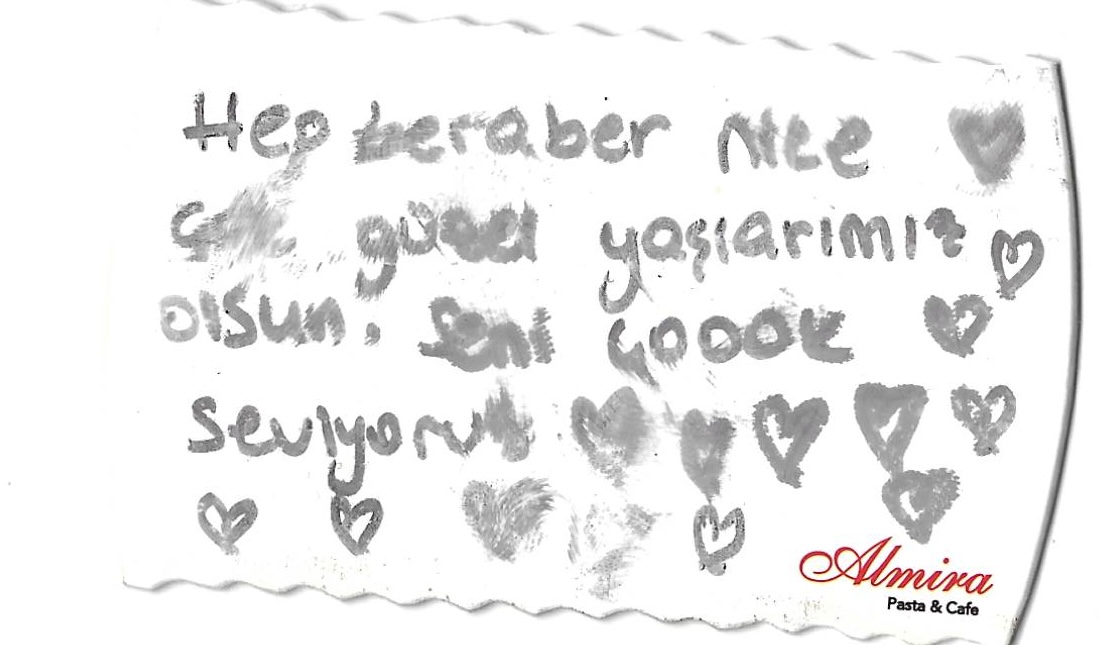 Hep beraber nice
güzel yaşlarımız
olsun. Seni çoook
seviyoruz
Almira
Pasta & Cafe